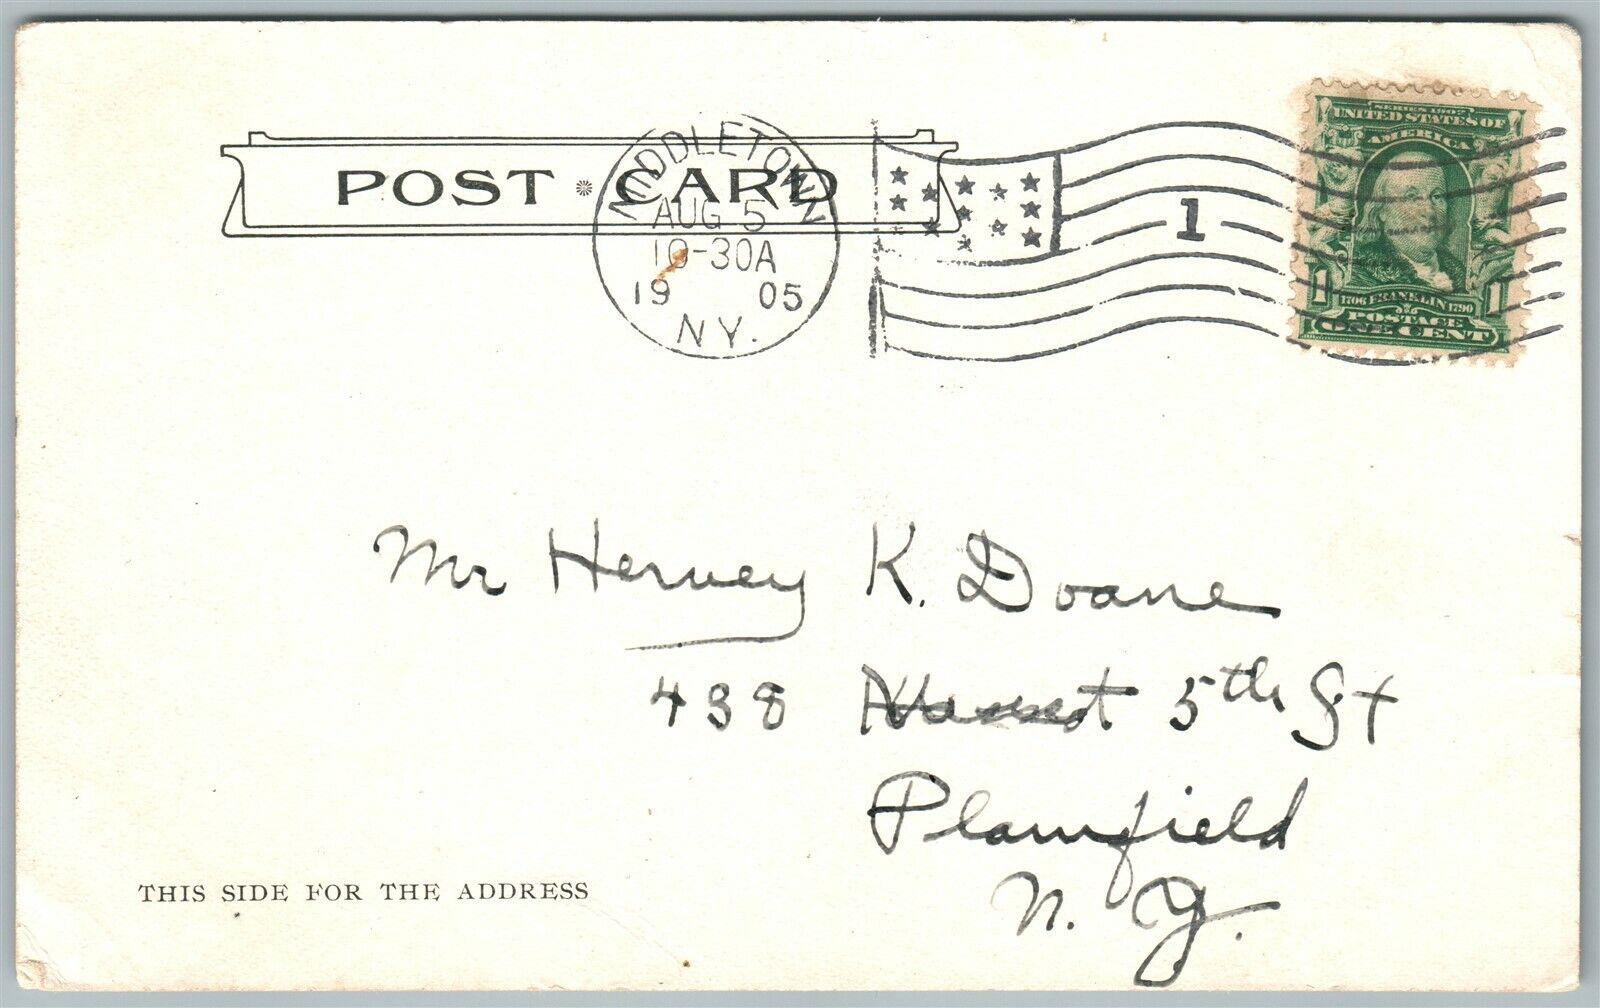 POST CARD
MIDDLETOWN
AUG 5
10-30A
19 05
N.Y.
1
SERIES 1902
UNITED STATES OF
AMERICA
1 1
1706 FRANKLIN 1790
POSTAGE
ONE CENT
Mr Hervey K. Doane
438 5th St
Plainfield
N. J.
THIS SIDE FOR THE ADDRESS